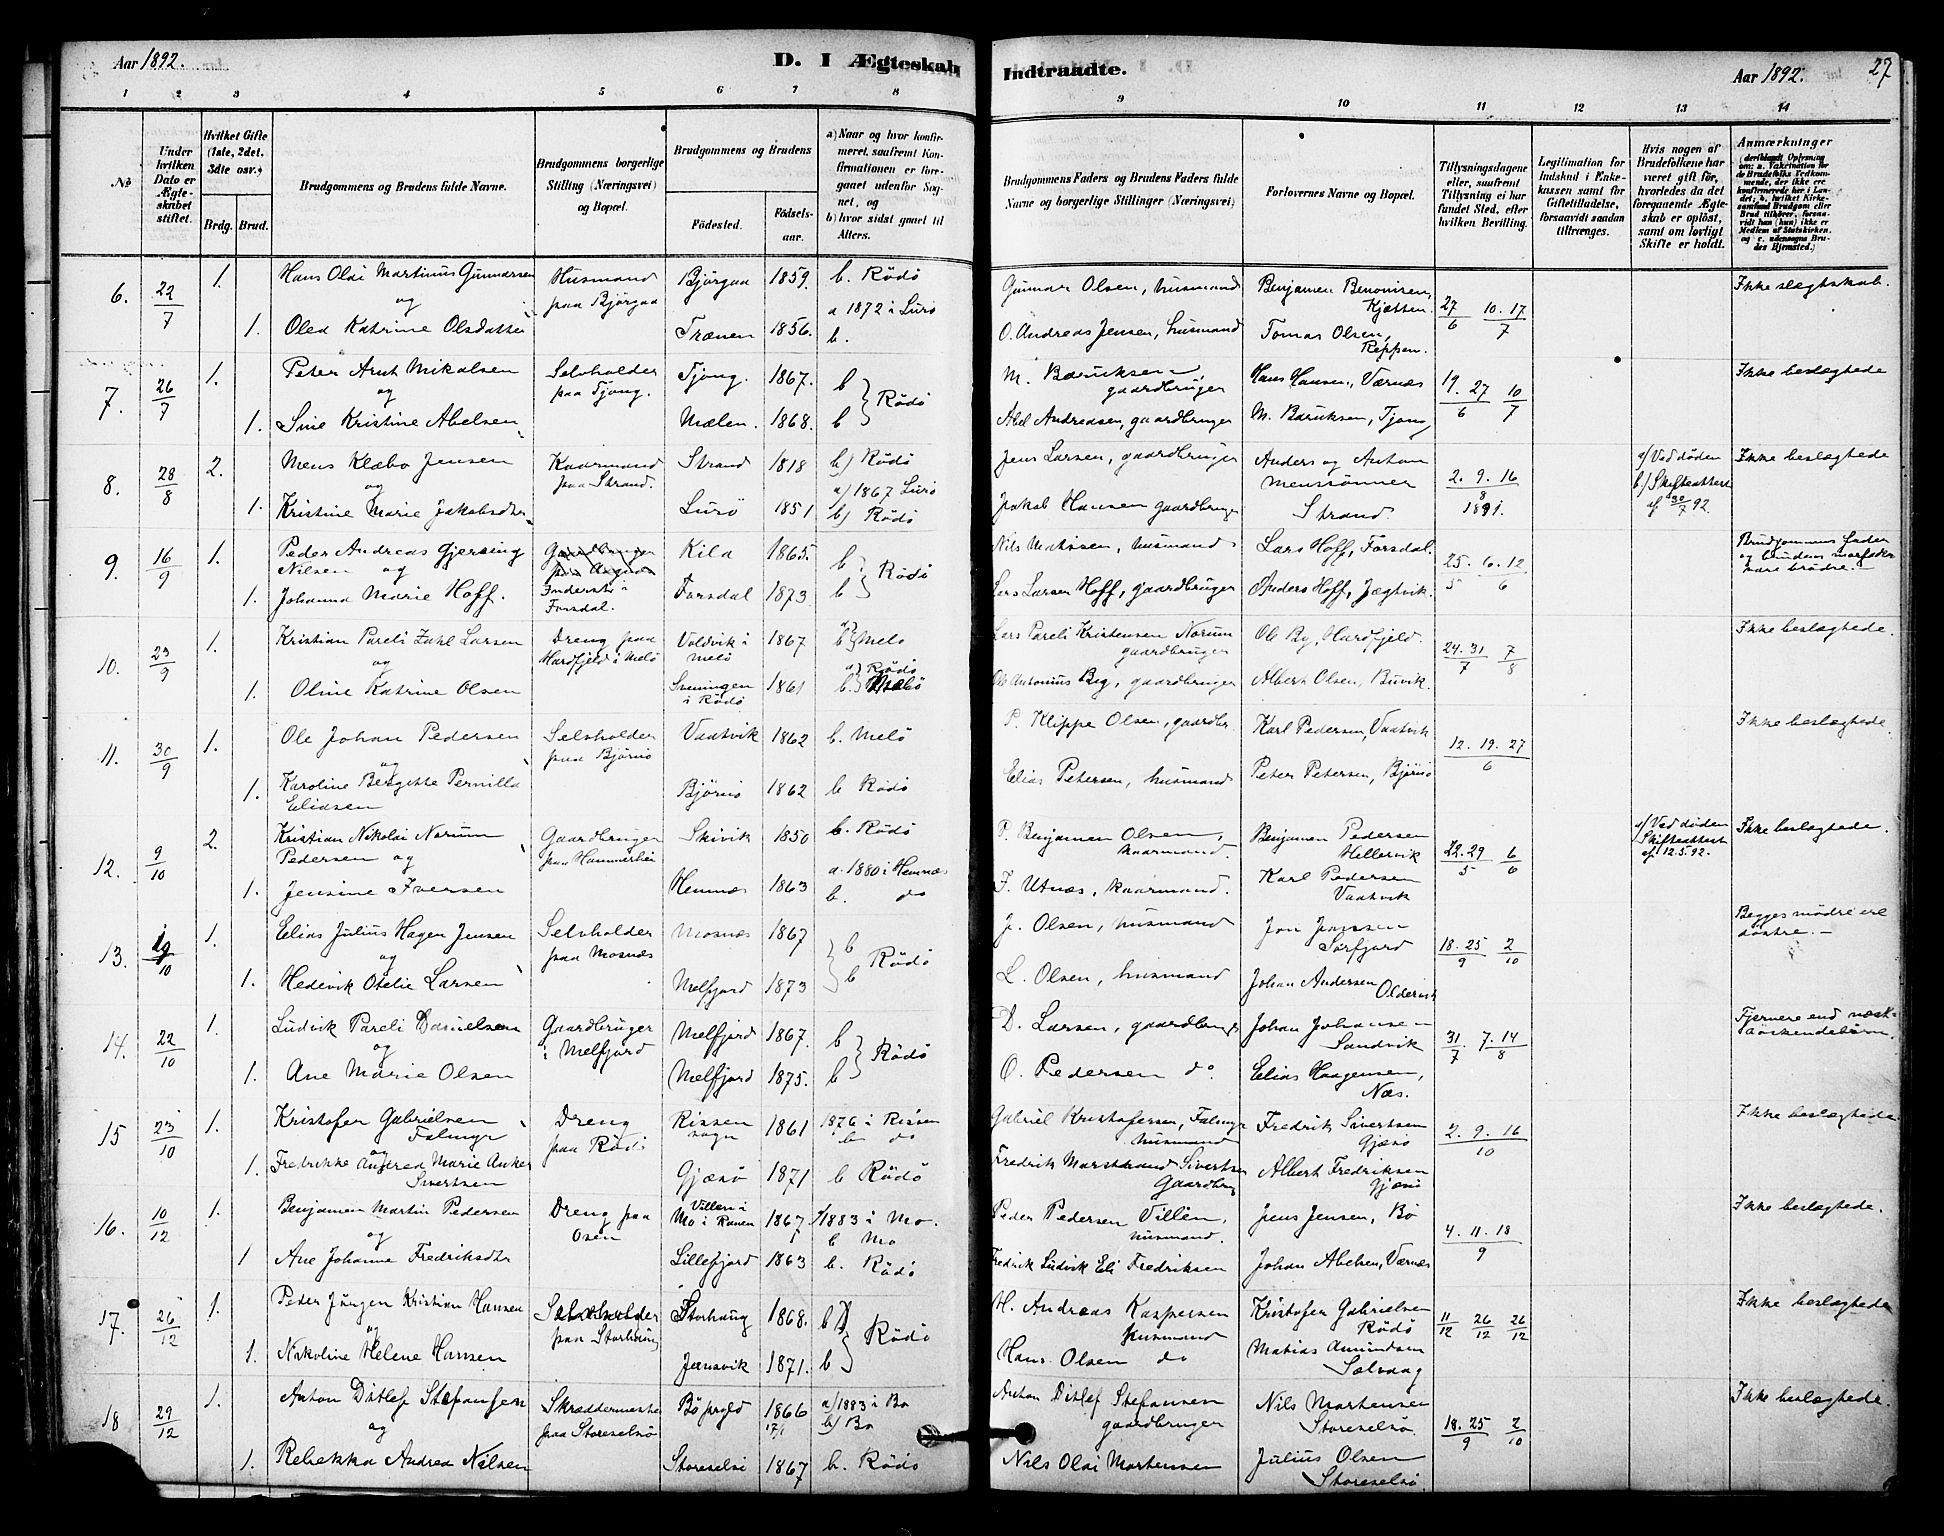 Aar 1892.
D. I Ægteskab
Indtraadte.
Aar 1892.
27
1 2 3 4 5 6 7 8
9 10 11 12 13 14
No
Under hvilken Dato er Ægteskabet stiftet.
Hvilket Gifte (1ste, 2det, 3die osv.)
Brdg. Brud.
Brudgommens og Brudens fulde Navne.
Brudgommens borgerlige Stilling (Næringsvei) og Bopæl.
Brudgommens og Brudens
Fødested.
Fødselsaar.
a) Naar og hvor konfirmeret, saafremt Konfirmationen er foregaaet udenfor Sognet, og
b) hvor sidst gaaet til Alters.
Brudgommens Faders og Brudens Faders fulde Navne og borgerlige Stillinger (Næringsvei)
Forlovernes Navne og Bopæl.
Tillysningsdagene eller, saafremt Tillysning ei har fundet Sted, efter hvilken Bevilling.
Legitimation for Indskud i Enkekassen samt for Giftetilladelse, forsaavidt saadan tiltrænges.
Hvis nogen af Brudefolkene har været gift før, hvorledes da det foregaaende Ægteskab er opløst, samt om lovligt Skifte er holdt.
Anmærkninger
6. 22/7 1. Hans Olai Martinus Gunnarsen Husmand Bjørgaa 1859. b. Rödö Gunnar Olsen, husmand Benjamen Benonisen, Kjøtten. 27/6 10. 17/7 Ikke slegtskab.
og paa Bjørgaa a 1872 i Lurö
1. Olea Katrine Olsdatter Trænen 1856. b. O. Andreas Jensen, husmand Tomas Olsen, Reppen.
7. 26/7 1. Peter Arnt Mikalsen Selvholder Tjong. 1867. b Rödö M. Baruksen, gaardbruger Hans Hansen, Værnæs 19. 27/6 10/7 Ikke beslægtede
og paa Tjong.
1. Sine Kristine Abelsen Mælen. 1868. b Abel Andreasen, gaardbruger M. Baruksen, Tjong
8. 28/8 2. Mens Klæbo Jensen Kaarmand Strand 1818 b) Rödö Jens Larsen, gaardbruger Anders og Anton Menssønner 2. 9. 16/8 1891. a) Ved døden Ikke beslægtede
og paa Strand. a) 1867 Lurö b.) Skifteattest
1. Kristine Marie Jakobsdtr Lurö 1851 b) Rödö Jakob Hansen gaardbruger Strand. af 30/7 92.
9. 16/9 1. Peder Andreas Gjersing Kila 1865. b. Rödö Nils Matisen, husmand Lars Hoff, Forsdal. 25/5 6. 12/6 Brudgommens fader
Nilsen og og brudens morfader
1. Johanna Marie Hoff. Inderst i Forsdal. Forsdal 1873 b Lars Larsen Hoff, gaardbruger Anders Hoff, Jægtvik. vare brødre.
10. 23/9 1. Kristian Pareli Zahl Larsen Dreng paa Valdvik i Melö 1867 b Melö Lars Pareli Kristensen Norum gaardbruger Ole By, Hardfjeld. 24. 31/7 7/8 Ikke beslægtede.
og Hardfjeld i Melö a) Rödö
1. Oline Katrine Olsen i Rödö 1861 b. Ole Antonius Beg, gaardbruger Albert Olsen, Buvik.
11. 30/9 1. Ole Johan Pedersen Selvholder Vaatvik 1862 b. Melö P. Klippe Olsen, gaardbr. Karl Pedersen, Vaatvik 12. 19. 27/6 Ikke beslægtede
og paa Bjørnö
1. Karoline Bergitte Pernilla Eliasen Bjørnö 1862 b Rödö Elias Petersen, husmand Peter Petersen, Bjørnö
12. 9/10 2. Kristian Nikolai Norum Gaardbruger Skivik 1850 b. Rödö P. Benjamen Olsen, kaarmand. Benjamen Pedersen Hellervik 22. 29/5 6/6 a) Ved døden Ikke beslægtede.
Pedersen og Skifteattest
1. Jensine Iversen Hemnæs 1863 a. 1880 i Hemnæs b. do I. Utnæs, kaarmand. Karl Pedersen Vaatvik af 12.5.92.
13. 19/10 1. Elias Julius Hagen Jensen Selvholder Mosnæs 1867 b Rödö J. Olsen, husmand Jon Jonssen Sørfjord 18. 25/9 2/10 Begges mødre ere søstre.
og paa Mosnæs
1. Hedevik Otelie Larsen Melfjord 1873 b L. Olsen, husmand Johan Andersen Oldervik
14. 22/10 1. Ludvik Pareli Danielsen Gaardbruger Melfjord 1867. b Rödö D. Larsen, gaardbruger Johan Johansen Sandvik 31/7 7. 14/8 Fjernere end næst-
og i Melfjord søskendebørn.
1. Ane Marie Olsen Melfjord 1875. b O. Pedersen do. Elias Haagensen, Næs.
15 23/10 1. Kristofer Gabrielsen Dreng Rissen sogn 1861 1876 i Rissen b. do Gabriel Kristofersen, husmand Fredrik Sivertsen Gjæsö 2. 9. 16/10 Ikke beslægtede
og paa Rödö
1. Fredrikke Andrea Marie Anker Sivertsen Gjæsö 1871 b Rödö Fredrik Marstrand Sivertsen Gaardbrug Albert Fredriksen Gjæsö
16. 10/12 1. Benjamen Martin Pedersen Dreng paa Villen i Mo i Ranen 1867 a/1883 i Mo. b Mo Peder Pedersen Villen, husmand. Jens Jensen, Bö 4. 11. 18/9 Ikke beslægtede.
og Osen
1 Ane Johanna Fredriksdtr Lillefjord 1863 b. Rödö Fredrik Ludvik Eli Fredriksen Johan Abelsen, Værnæs
17. 26/12 1. Peter Jürgen Kristian Hansen Selvholder Storhaug 1868. b Rödö H. Andreas Kaspersen husmand Kristofer Gabrielsen Rödö 11/12 26/12 26/12 Ikke beslægtede
og paa Storhaug
1. Nikoline Helene Hansen Jensvik 1871. b Hans Olsen do Matias Amundsen Selvaag
18 29/12 1. Anton Ditlef Stefansen Skræddermester Bö prgld 1866 17/1 a/1883 i Bo b) Bo Anton Ditlef Stefansen gaardbruger Nils Mortensen Storeselsö. 18. 25/9 2/10 Ikke beslægtede.
og paa Storeselsö
1. Rebekka Andrea Nilsen Storeselsö 1867 b. Rödö Nils Olai Mortensen Julius Olsen Storeselsö